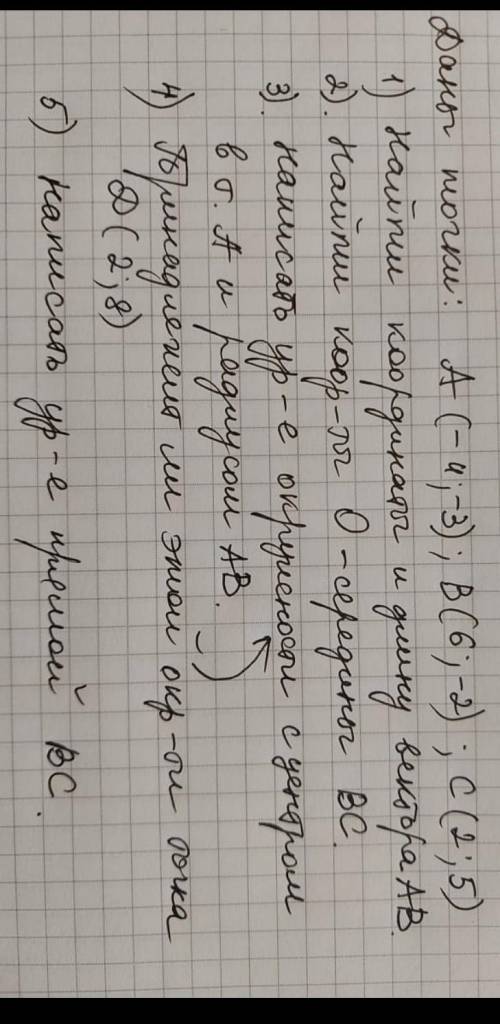 Даны точки: А (-4;-3); В(6;-2); С(2;5)
1) Найти координаты и длину вектора АВ.
2). Найти коор-ты О-середины ВС.
3). Написать ур-е окружности с центром
в т. А и радиусом АВ.
4) Принадлежит ли этой окр-ти точка
Д(2;8)
5) Написать ур-е прямой ВС.